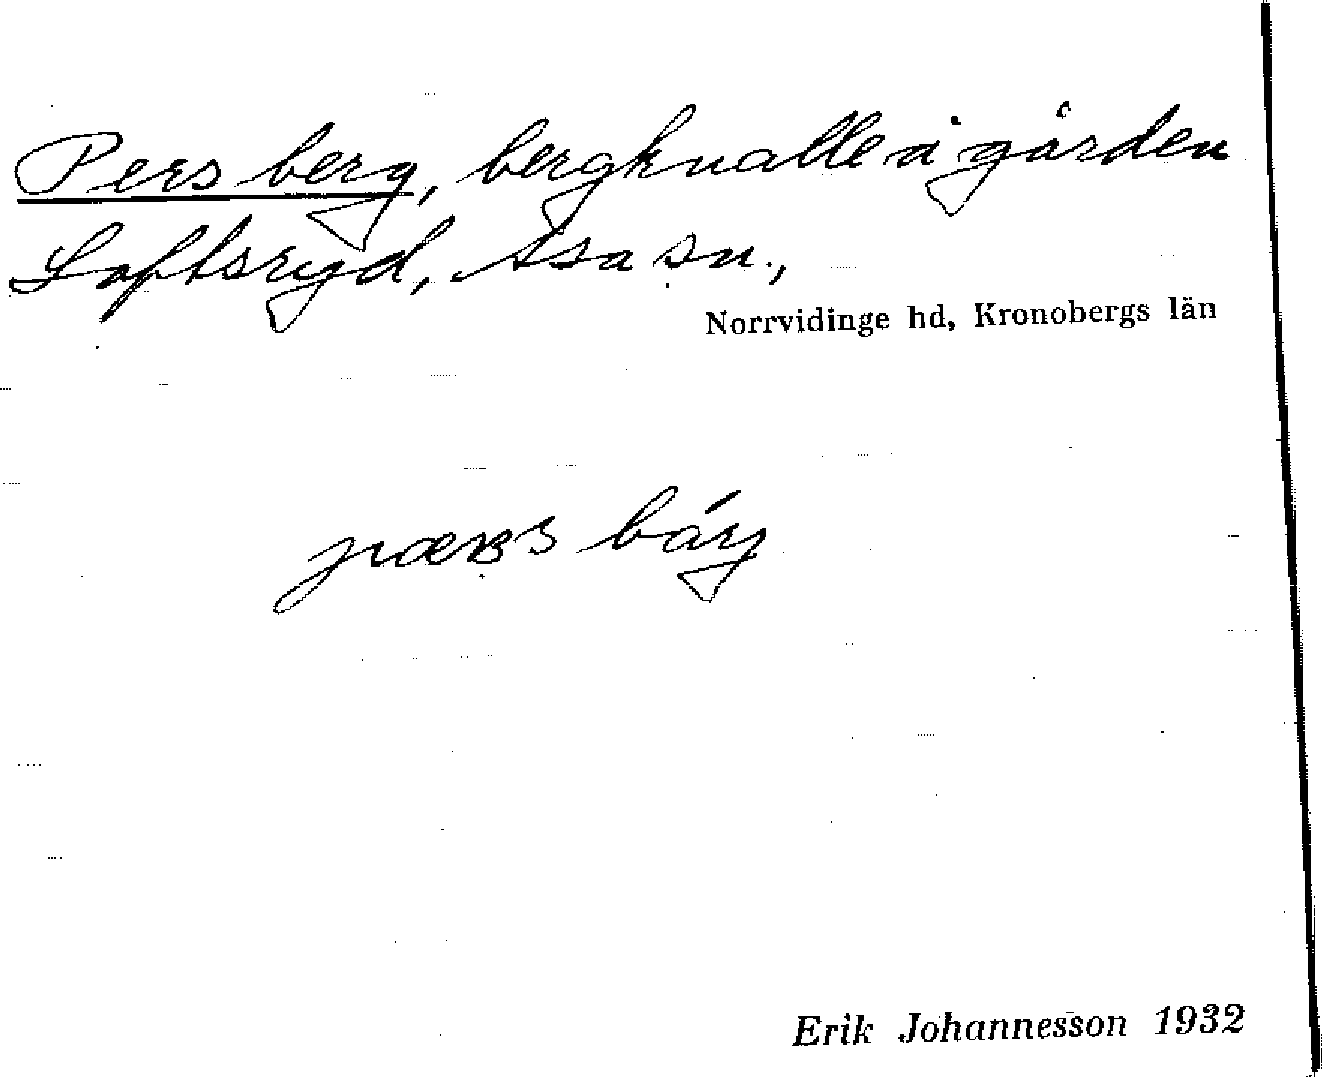 Pers berg, bergknalle å gården
Loftsryd, Asa sn.,
Norrvidinge hd, Kronobergs län
bárj
Erik Johannesson 1932